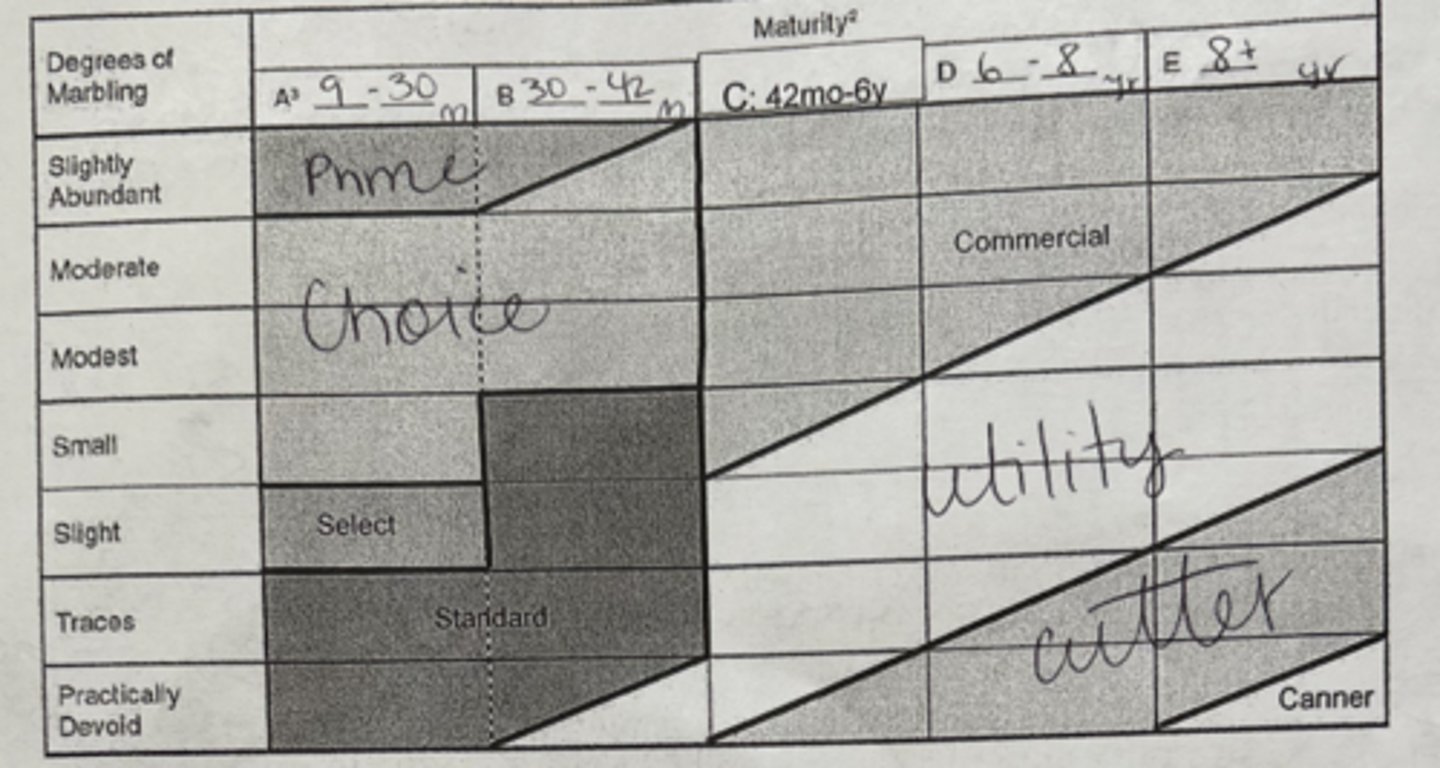 Maturity²
Degrees of
Marbling
A³ 9 - 30 m
B 30 - 42 m
C: 42mo-6y
D 6 - 8 yr
E 8+ yr
Slightly
Abundant
Prime
Moderate
Commercial
Choice
Modest
Small
utility
Slight
Select
Traces
Standard
cutter
Practically
Devoid
Canner